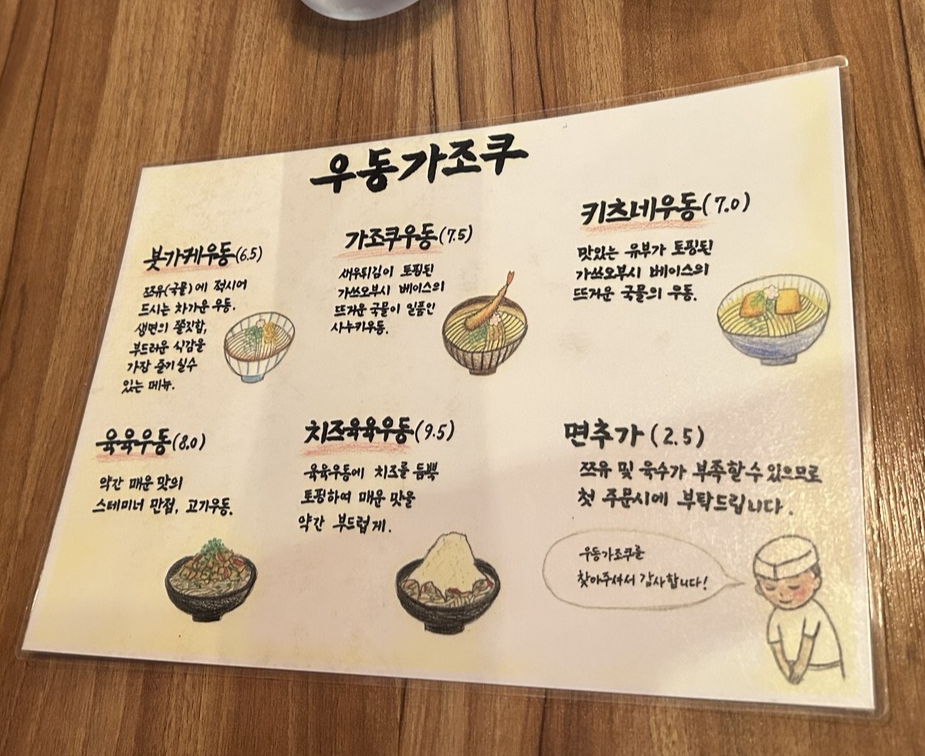 우동가조쿠
붓가케우동(6.5)
쯔유(국물)에 적시어
드시는 차가운 우동.
생면의 쫄깃함,
부드러운 식감을
가장 즐기실수
있는 메뉴.
가조쿠우동(7.5)
새우튀김이 토핑된
가쓰오부시 베이스의
뜨거운 국물이 일품인
사누키우동.
키츠네우동(7.0)
맛있는 유부가 토핑된
가쓰오부시 베이스의
뜨거운 국물의 우동.
육육우동(8.0)
약간 매운 맛의
스테미너 만점, 고기우동.
치즈육육우동(9.5)
육육우동에 치즈를 듬뿍
토핑하여 매운 맛을
약간 부드럽게.
면추가(2.5)
쯔유 및 육수가 부족할 수 있으므로
첫 주문시에 부탁드립니다.
우동가조쿠를
찾아주셔서 감사합니다!